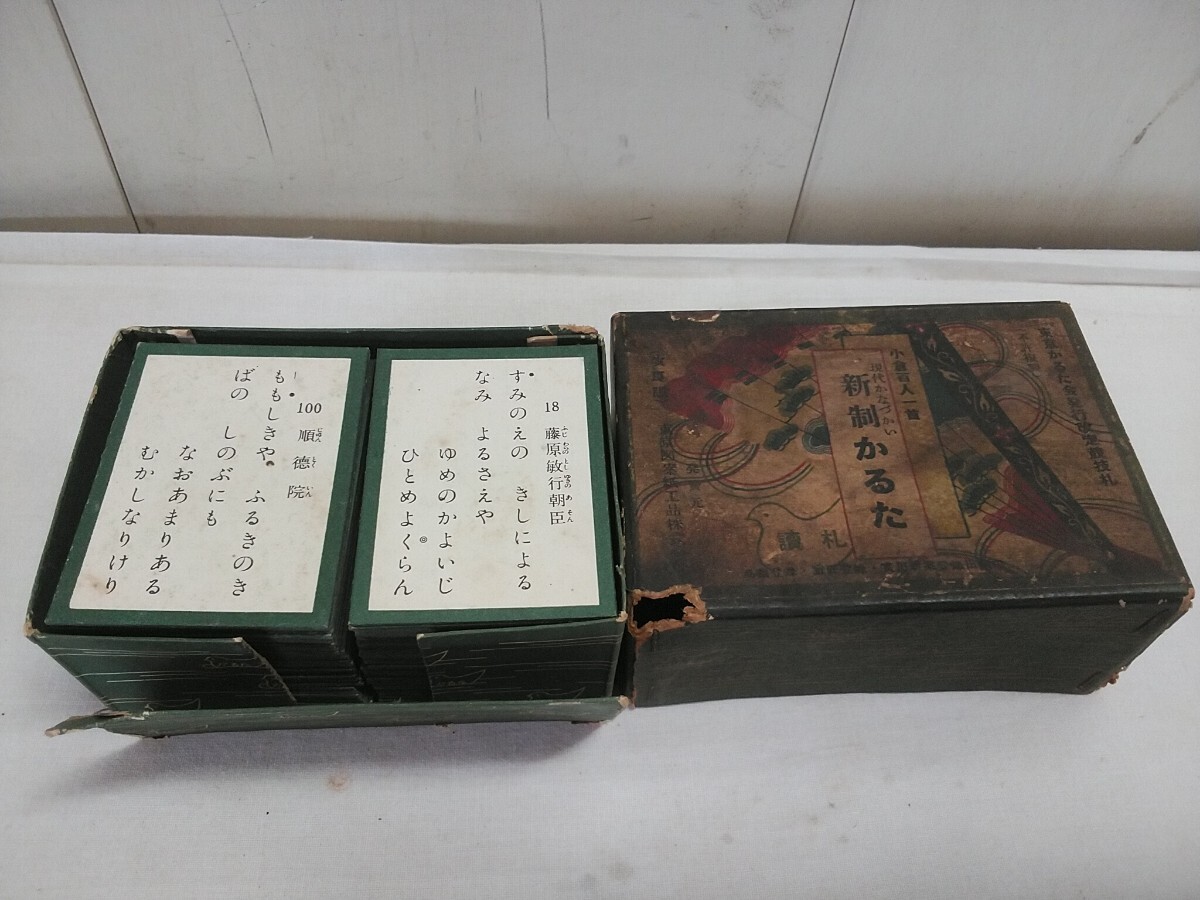 100 順徳院
じゅんとくいん
ももしきや ふるきのき
ばの しのぶにも
なおあまりある
むかしなりけり
18 藤原敏行朝臣
ふじわらのとしゆきのあそん
すみのえの きしによる
なみ よるさえや
ゆめのかよいじ
ひとめよくらん
小倉百人一首
現代かなづかい
新制かるた
讀札